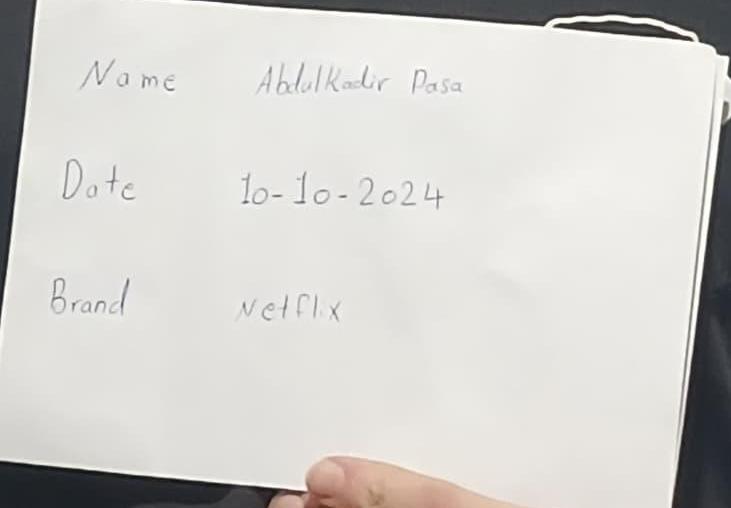 Name Abdulkadir Pasa
Date 10-10-2024
Brand Netflix